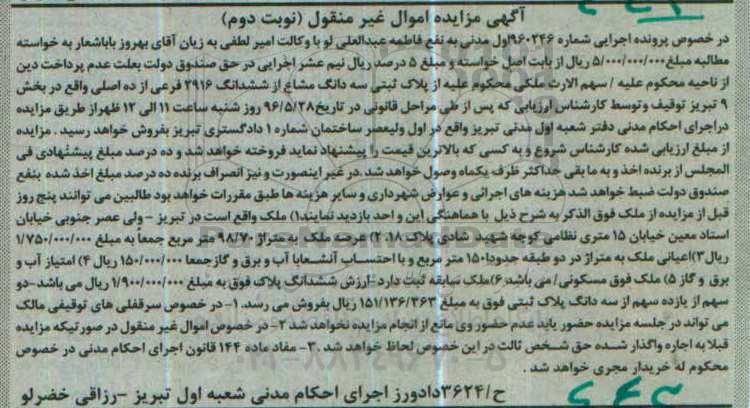 آگهی مزایده اموال غیر منقول (نوبت دوم)
در خصوص پرونده اجرایی شماره ۹۶۰۲۴۶اول مدنی به نفع فاطمه عبدالعلی لو با وکالت امیر لطفی به زیان آقای بهروز باباشعار به خواسته
مطالبه مبلغ ۵/۰۰۰/۰۰۰/۰۰۰ ریال از بابت اصل خواسته و مبلغ ۵ درصد ریال نیم عشر اجرایی در حق صندوق دولت بعلت عدم پرداخت دین
از ناحیه محکوم علیه / سهم الارث ملکی محکوم علیه از پلاک ثبتی سه دانگ مشاع از ششدانگ ۳۹۱۶ فرعی از ده اصلی واقع در بخش
۹ تبریز توقیف وتوسط کارشناس ارزیابی که پس از طی مراحل قانونی در تاریخ ۹۶/۵/۲۸ روز شنبه ساعت ۱۱ الی ۱۲ ظهر از طریق مزایده
دراجرای احکام مدنی دفتر شعبه اول مدنی تبریز واقع در اول ولیعصر ساختمان شماره ۱ دادگستری تبریز بفروش خواهد رسید . مزایده
از مبلغ ارزیابی شده کارشناس شروع و به کسی که بالاترین قیمت را پیشنهاد نماید فروخته خواهد شد و ده درصد مبلغ پیشنهادی فی
المجلس از برنده اخذ و به ما بقی حداکثر ظرف یکماه وصول خواهد شد.در غیر اینصورت و نیز انصراف برنده ده درصد مبلغ اخذ شده بنفع
صندوق دولت ضبط خواهد شد هزینه های اجرائی و عوارض شهرداری و سایر هزینه ها طبق مقررات خواهد بود طالبین می توانند پنج روز
قبل از مزایده از ملک فوق الذکر به شرح ذیل با هماهنگی این و احد بازدید نمایند۱) ملک واقع است در تبریز - ولی عصر جنوبی خیابان
استاد معین خیابان ۱۵ متری نظامی کوچه شهید شادی پلاک ۱۸ ۲) عرصه ملک به متراژ ۹۸/۷۰ متر مربع جمعاً به مبلغ ۱/۷۵۰/۰۰۰/۰۰۰
ریال ۳)اعیانی ملک به متراژ در دو طبقه جدودا۱۵۰ متر مربع و با احتساب انشعابا آب و برق و گاز جمعا ۱۵۰/۰۰۰/۰۰۰ ریال ۴) امتیاز آب و
برق و گاز ۵) ملک فوق مسکونی/ می باشد ۶)ملک سابقه ثبت دارد-ارزش ششدانگ پلاک فوق به مبلغ ۱/۹۰۰/۰۰۰/۰۰۰ ریال می باشد-دو
سهم از یازده سهم از سه دانگ پلاک ثبتی فوق به مبلغ ۱۵۱/۱۳۶/۳۶۳ ریال بفروش می رسد. ۱- در خصوص سرقفلی های توقیفی مالک
می تواند در جلسه مزایده حضور یابد عدم حضور وی مانع از انجام مزایده نخواهد شد ۲- در خصوص اموال غیر منقول در صورتیکه مزایده
قبلا به اجاره واگذار شده حق شخص ثالث در این خصوص لحاظ خواهد شد . ۳- مفاد ماده ۱۴۴ قانون اجرای احکام مدنی در خصوص
محکوم له خریدار مجری خواهد شد .
ح/۳۶۲۴دادورز اجرای احکام مدنی شعبه اول تبریز -رزاقی خضرلو